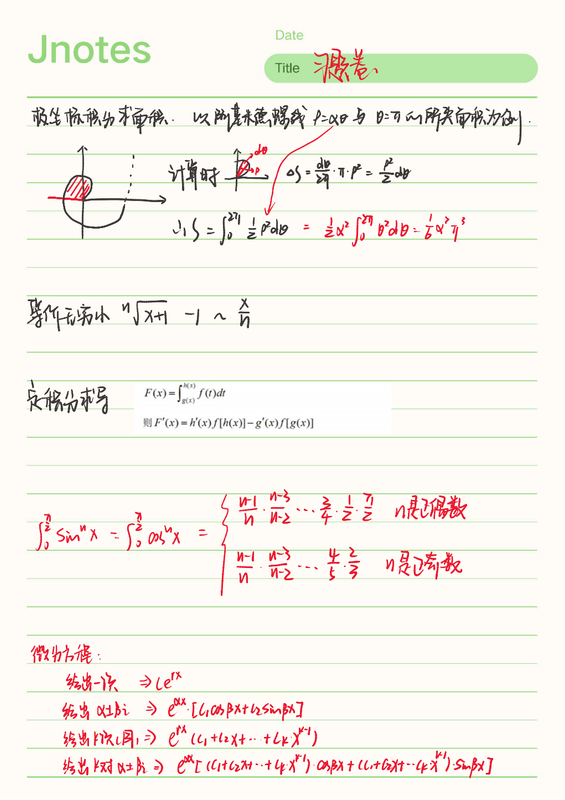 Jnotes
Date
Title 习题卷、
极坐标积分求面积. 以阿基米德螺线 ρ=αθ 与 θ=π 所夹面积为例.
计算时 dθ ρ ΔS = dθ/2π · π · ρ² = ρ²/2 dθ
∴ S = ∫₀^2π 1/2 ρ² dθ = 1/2 α² ∫₀^2π θ² dθ = 1/6 α² π³
等价无穷小 ⁿ√(x+1) - 1 ~ x/n
定积分求导
F(x) = ∫_{g(x)}^{h(x)} f(t)dt
则 F′(x) = h′(x) f[h(x)] − g′(x) f[g(x)]
n-1/n · n-3/n-2 ... 3/4 · 1/2 · π/2 n是正偶数
∫₀^{π/2} sinⁿx = ∫₀^{π/2} cosⁿx =
n-1/n · n-3/n-2 ... 4/5 · 2/3 n是正奇数
微分方程:
给出一次 ⇒ Ce^{rx}
给出 α±βi ⇒ e^{αx}·[C₁cosβx+C₂sinβx]
给出k次 ⇒ e^{rx}(C₁+C₂x+...+Cₖx^{k-1})
给出k对 α±βi ⇒ e^{αx}[(C₁+C₂x+...+Cₖx^{k-1})·cosβx+(C₁+C₂x+...Cₖx^{k-1})·sinβx]